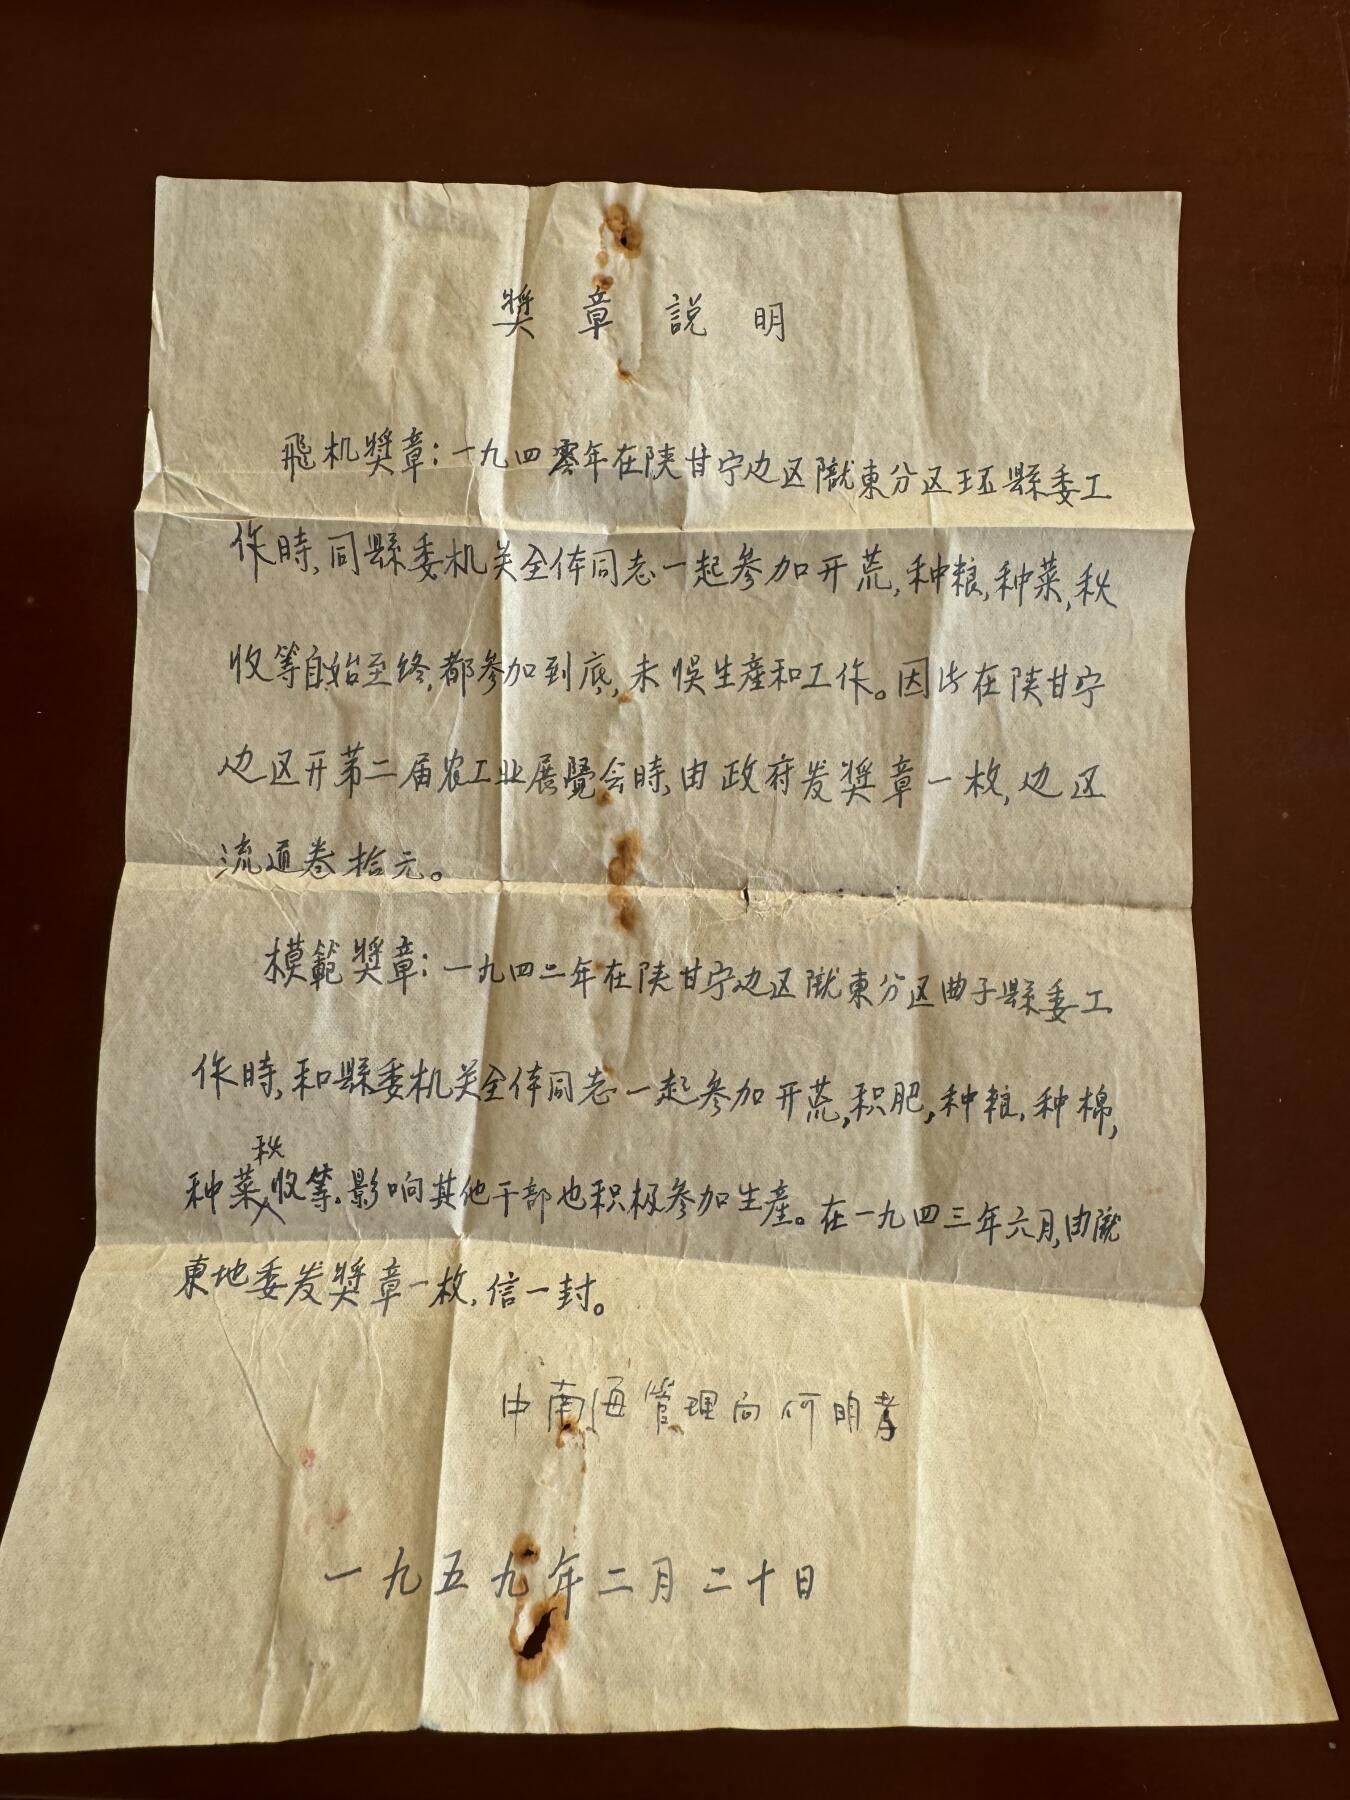 獎章説明
飛机獎章：一九四零年在陕甘宁边区陇東分区环縣委工
作時，同縣委机关全体同志一起参加开荒，种粮，种菜，秋
收等自始至终，都参加到底，未悮生産和工作。因此在陕甘宁
边区开第二届农工业展覽会時，由政府发奬章一枚，边区
流通卷拾元。
模範奬章：一九四二年在陕甘宁边区陇東分区曲子縣委工
作時，和縣委机关全体同志一起参加开荒，积肥，种粮，种棉，
种菜秋收等。影响其他干部也积极参加生産。在一九四三年六月，由陇
東地委发奬章一枚，信一封。
中南海管理局何明孝
一九五九年二月二十日